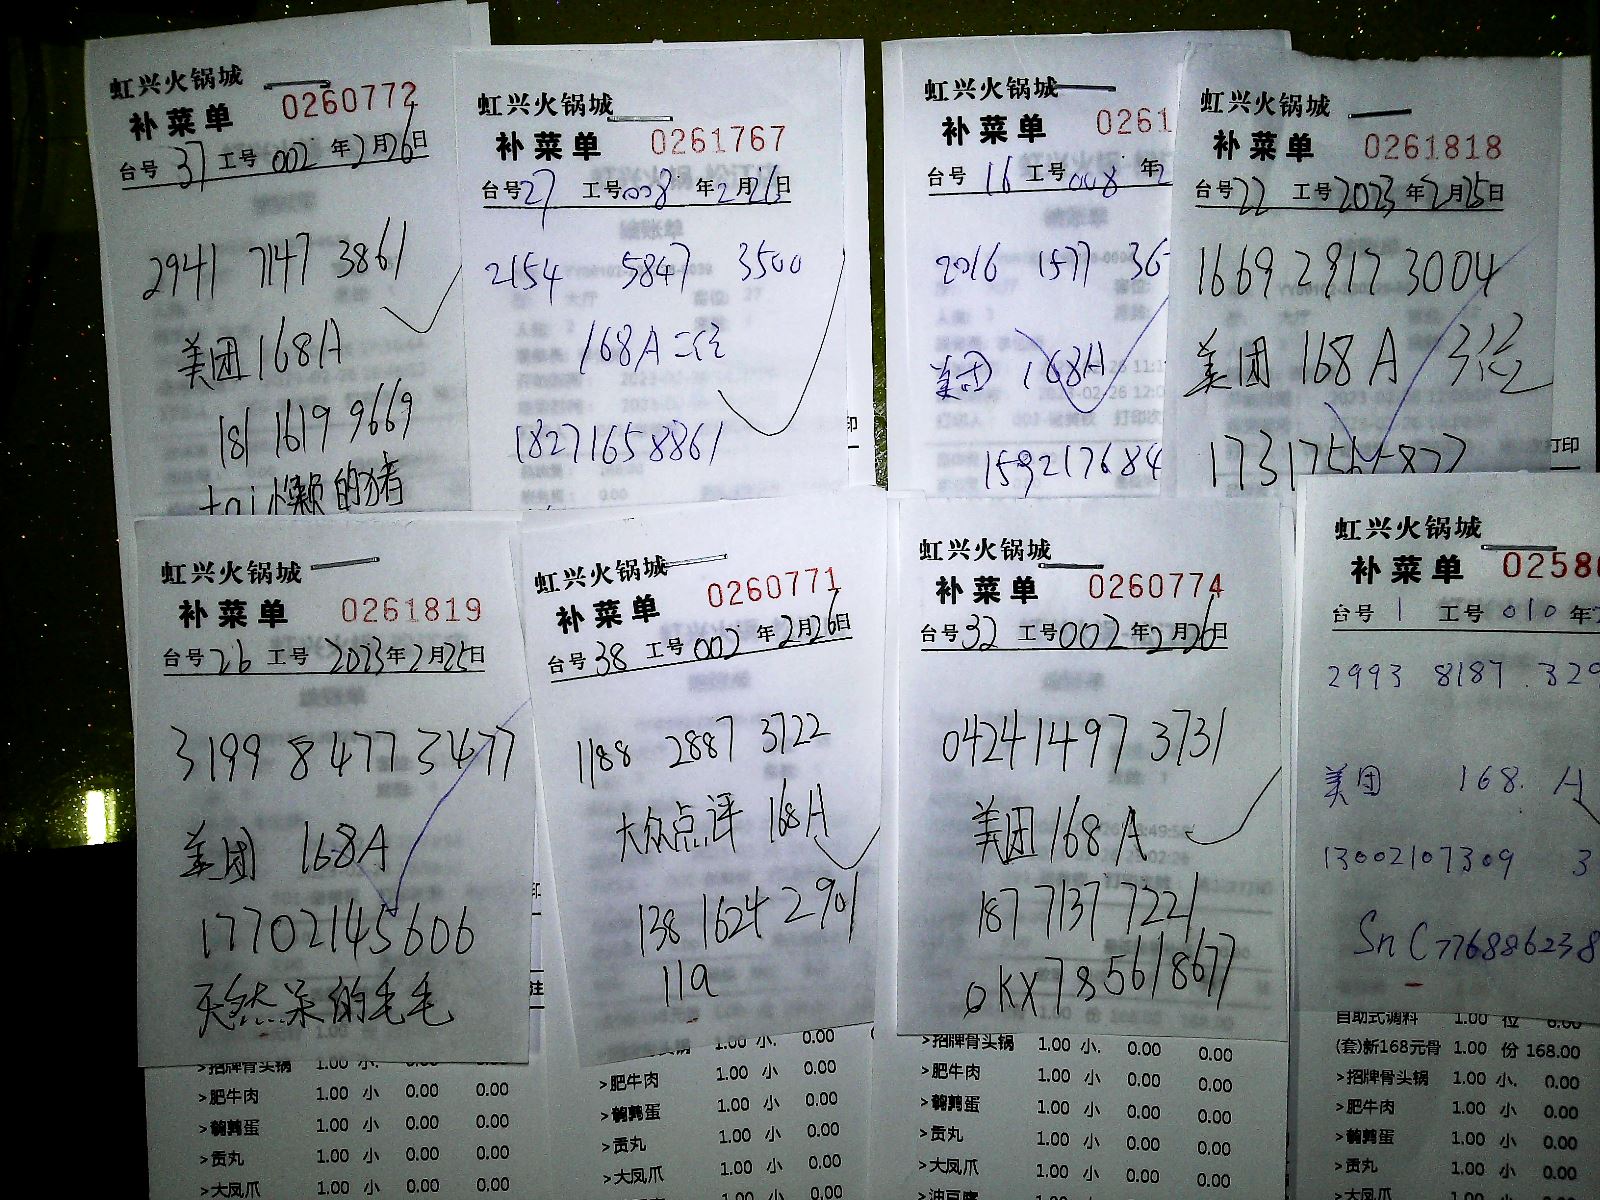 虹兴火锅城
补菜单 0260772
台号 37 工号 002 年 2月26日
2941 7147 3861
美团 168A
181 1619 9669
懒的猪
虹兴火锅城
补菜单 0261767
台号 27 工号 008 年 2月26日
2154 5847 3500
168A 二位
18271658861
虹兴火锅城
补菜单 0261
台号 16 工号 008 年2
2016 1577 36
美团 168A
159217684
虹兴火锅城
补菜单 0261818
台号 22 工号 2023 年2月25日
1669 2917 3004
美团 168A 3位
打印
虹兴火锅城
补菜单 0261819
台号 26 工号 2023年2月25日
3199 8477 3477
美团 168A
17702145606
天然呆的毛毛
>招牌骨头锅 1.00 小. 0.00 0.00
>肥牛肉 1.00 小 0.00 0.00
>鹌鹑蛋 1.00 小 0.00 0.00
>贡丸 1.00 小 0.00 0.00
>大凤爪 1.00 小 0.00 0.00
虹兴火锅城
补菜单 0260771
台号 38 工号 002 年 2月26日
1188 2887 3722
大众点评 168A
138 1624 2901
119
1.00 小. 0.00
>肥牛肉 1.00 小 0.00
>鹌鹑蛋 1.00 小 0.00
>贡丸 1.00 小 0.00
>大凤爪 1.00 小 0.00
虹兴火锅城
补菜单 0260774
台号 32 工号 002 年2月26日
0424 1497 3731
美团 168A
187 7137 7221
OKX785618677
>招牌骨头锅 1.00 小. 0.00 0.00
>肥牛肉 1.00 小 0.00 0.00
>鹌鹑蛋 1.00 小 0.00 0.00
>贡丸 1.00 小 0.00 0.00
>大凤爪 1.00 小 0.00 0.00
>油豆腐
虹兴火锅城
补菜单 0258
台号 1 工号 010 年
2993 8187 329
美团 168. A
13002107309 3
Sn C776886238
自助式调料 1.00 位 8.00
(套)新168元骨 1.00 份 168.00
>招牌骨头锅 1.00 小. 0.00
>肥牛肉 1.00 小 0.00
>鹌鹑蛋 1.00 小 0.00
>贡丸 1.00 小 0.00
>大凤爪 1.00 小 0.00